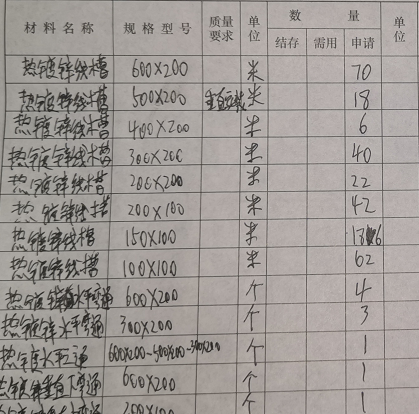 材料名称 规格型号 质量要求 单位 数量 单位
结存 需用 申请
热镀锌线槽 600×200 米 70
热镀锌线槽 500×200 米 18
热镀锌线槽 400×200 米 6
热镀锌线槽 300×200 米 40
热镀锌线槽 200×200 米 22
热镀锌线槽 200×100 米 42
热镀锌线槽 150×100 米
热镀锌线槽 100×100 米 62
热镀锌水平弯通 600×200 个 4
热镀锌水平弯通 300×200 个 3
热镀水平三通 600×200~500×200~300×200 个 1
热镀锌垂直下弯通 600×200 个 1
200×100 个 1